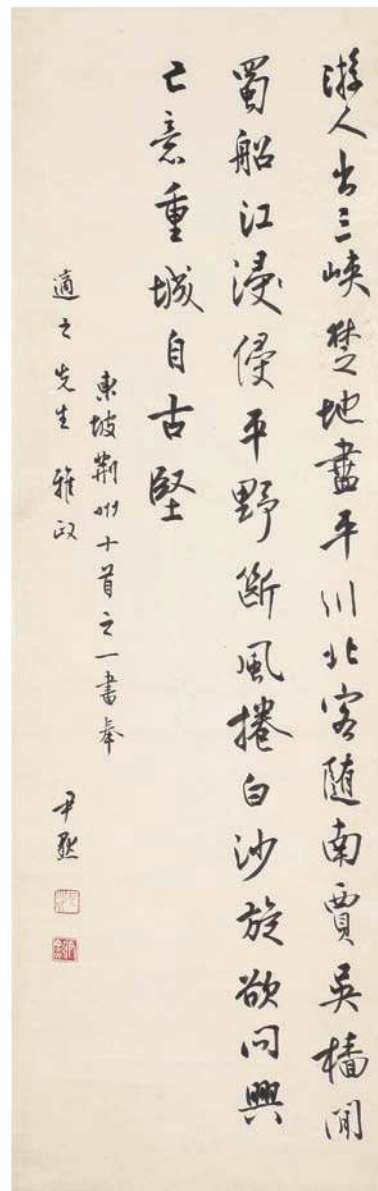 游人出三峽楚地盡平川北客随南賈吳檣間
蜀船江浸侵平野斷風捲白沙旋欲问興
亡意重城自古堅
東坡荆州十首之一書奉
適之先生雅政
尹默